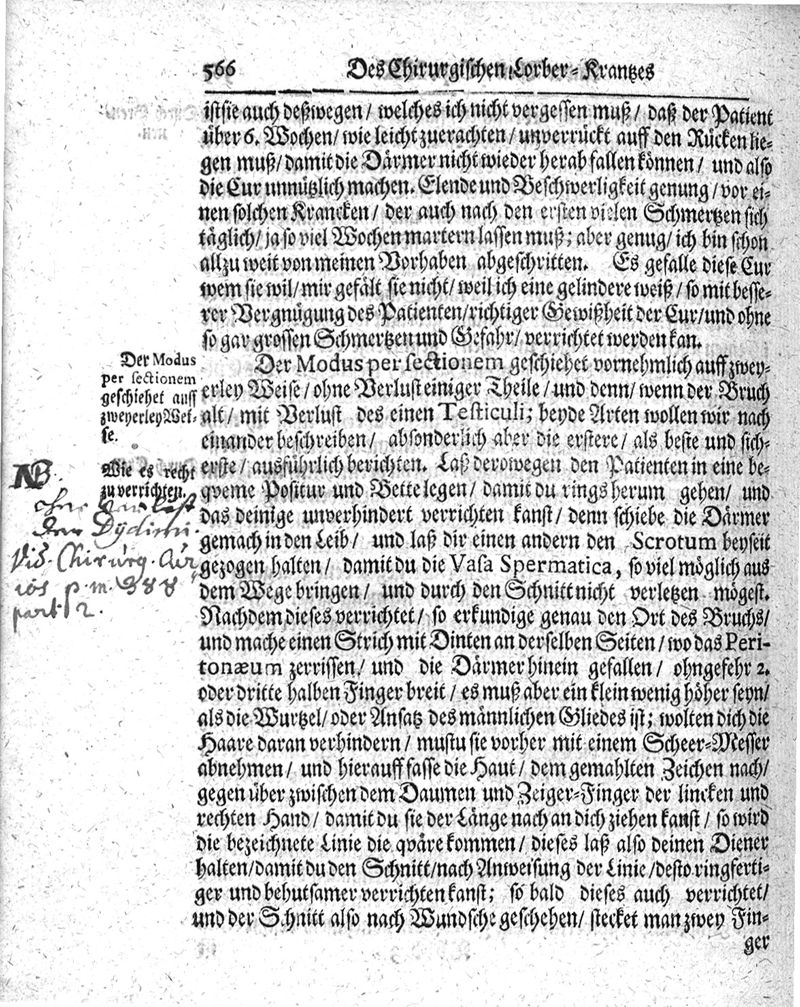 566 Des Chirurgischen Lorber-Krantzes
ist sie auch deßwegen / welches ich nicht vergessen muß / daß der Patient
über 6. Wochen / wie leicht zuerachten / unverrückt auff den Rücken lie-
gen muß / damit die Därmer nicht wieder herab fallen können / und also
die Cur unnützlich machen. Elende und Beschwerligkeit genung / vor ei-
nen solchen Krancken / der auch nach den ersten vielen Schmertzen sich
täglich / ja so viel Wochen martern lassen muß; aber genug / ich bin schon
allzu weit von meinen Vorhaben abgeschritten. Es gefalle diese Cur
wem sie wil / mir gefält sie nicht / weil ich eine gelindere weiß / so mit besse-
rer Vergnügung des Patienten / richtiger Gewißheit der Cur / und ohne
so gar grossen Schmertzen und Gefahr / verrichtet werden kan.
Der Modus
per sectionem
geschiehet auff
zweyerley Wei-
se.
Der Modus per sectionem geschiehet vornehmlich auff zwey-
erley Weise / ohne Verlust einiger Theile / und denn / wenn der Bruch
alt / mit Verlust des einen Testiculi; beyde Arten wollen wir nach
einander beschreiben / absonderlich aber die erstere / als beste und sich-
Wie es recht
zu verrichten.
erste / ausführlich berichten. Laß derowegen den Patienten in eine be-
qveme Positur und Bette legen / damit du rings herum gehen / und
das deinige unverhindert verrichten kanst / denn schiebe die Därmer
gemach in den Leib / und laß dir einen andern den Scrotum beyseit
gezogen halten / damit du die Vasa Spermatica, so viel möglich aus
dem Wege bringen / und durch den Schnitt nicht verletzen mögest.
NB.
ohne verlust
der Dydimi
vid. Chirurg. Cur
p. m. 388
part. 2.
Nachdem dieses verrichtet / so erkundige genau den Ort des Bruchs /
und mache einen Strich mit Dinten an derselben Seiten / wo das Peri-
tonæum zerrissen / und die Därmer hinein gefallen / ohngefehr 2.
oder dritte halben Finger breit / es muß aber ein klein wenig höher seyn /
als die Wurtzel / oder Ansatz des männlichen Gliedes ist; wolten dich die
Haare daran verhindern / mustu sie vorher mit einem Scheer-Messer
abnehmen / und hierauff fasse die Haut / dem gemahlten Zeichen nach /
gegen über zwischen dem Daumen und Zeiger-Finger der lincken und
rechten Hand / damit du sie der Länge nach an dich ziehen kanst / so wird
die bezeichnete Linie die qväre kommen / dieses laß also deinen Diener
halten / damit du den Schnitt / nach Anweisung der Linie / desto ringferti-
ger und behutsamer verrichten kanst; so bald dieses auch verrichtet /
und der Schnitt also nach Wundsche geschehen / stecket man zwey Fin-
ger